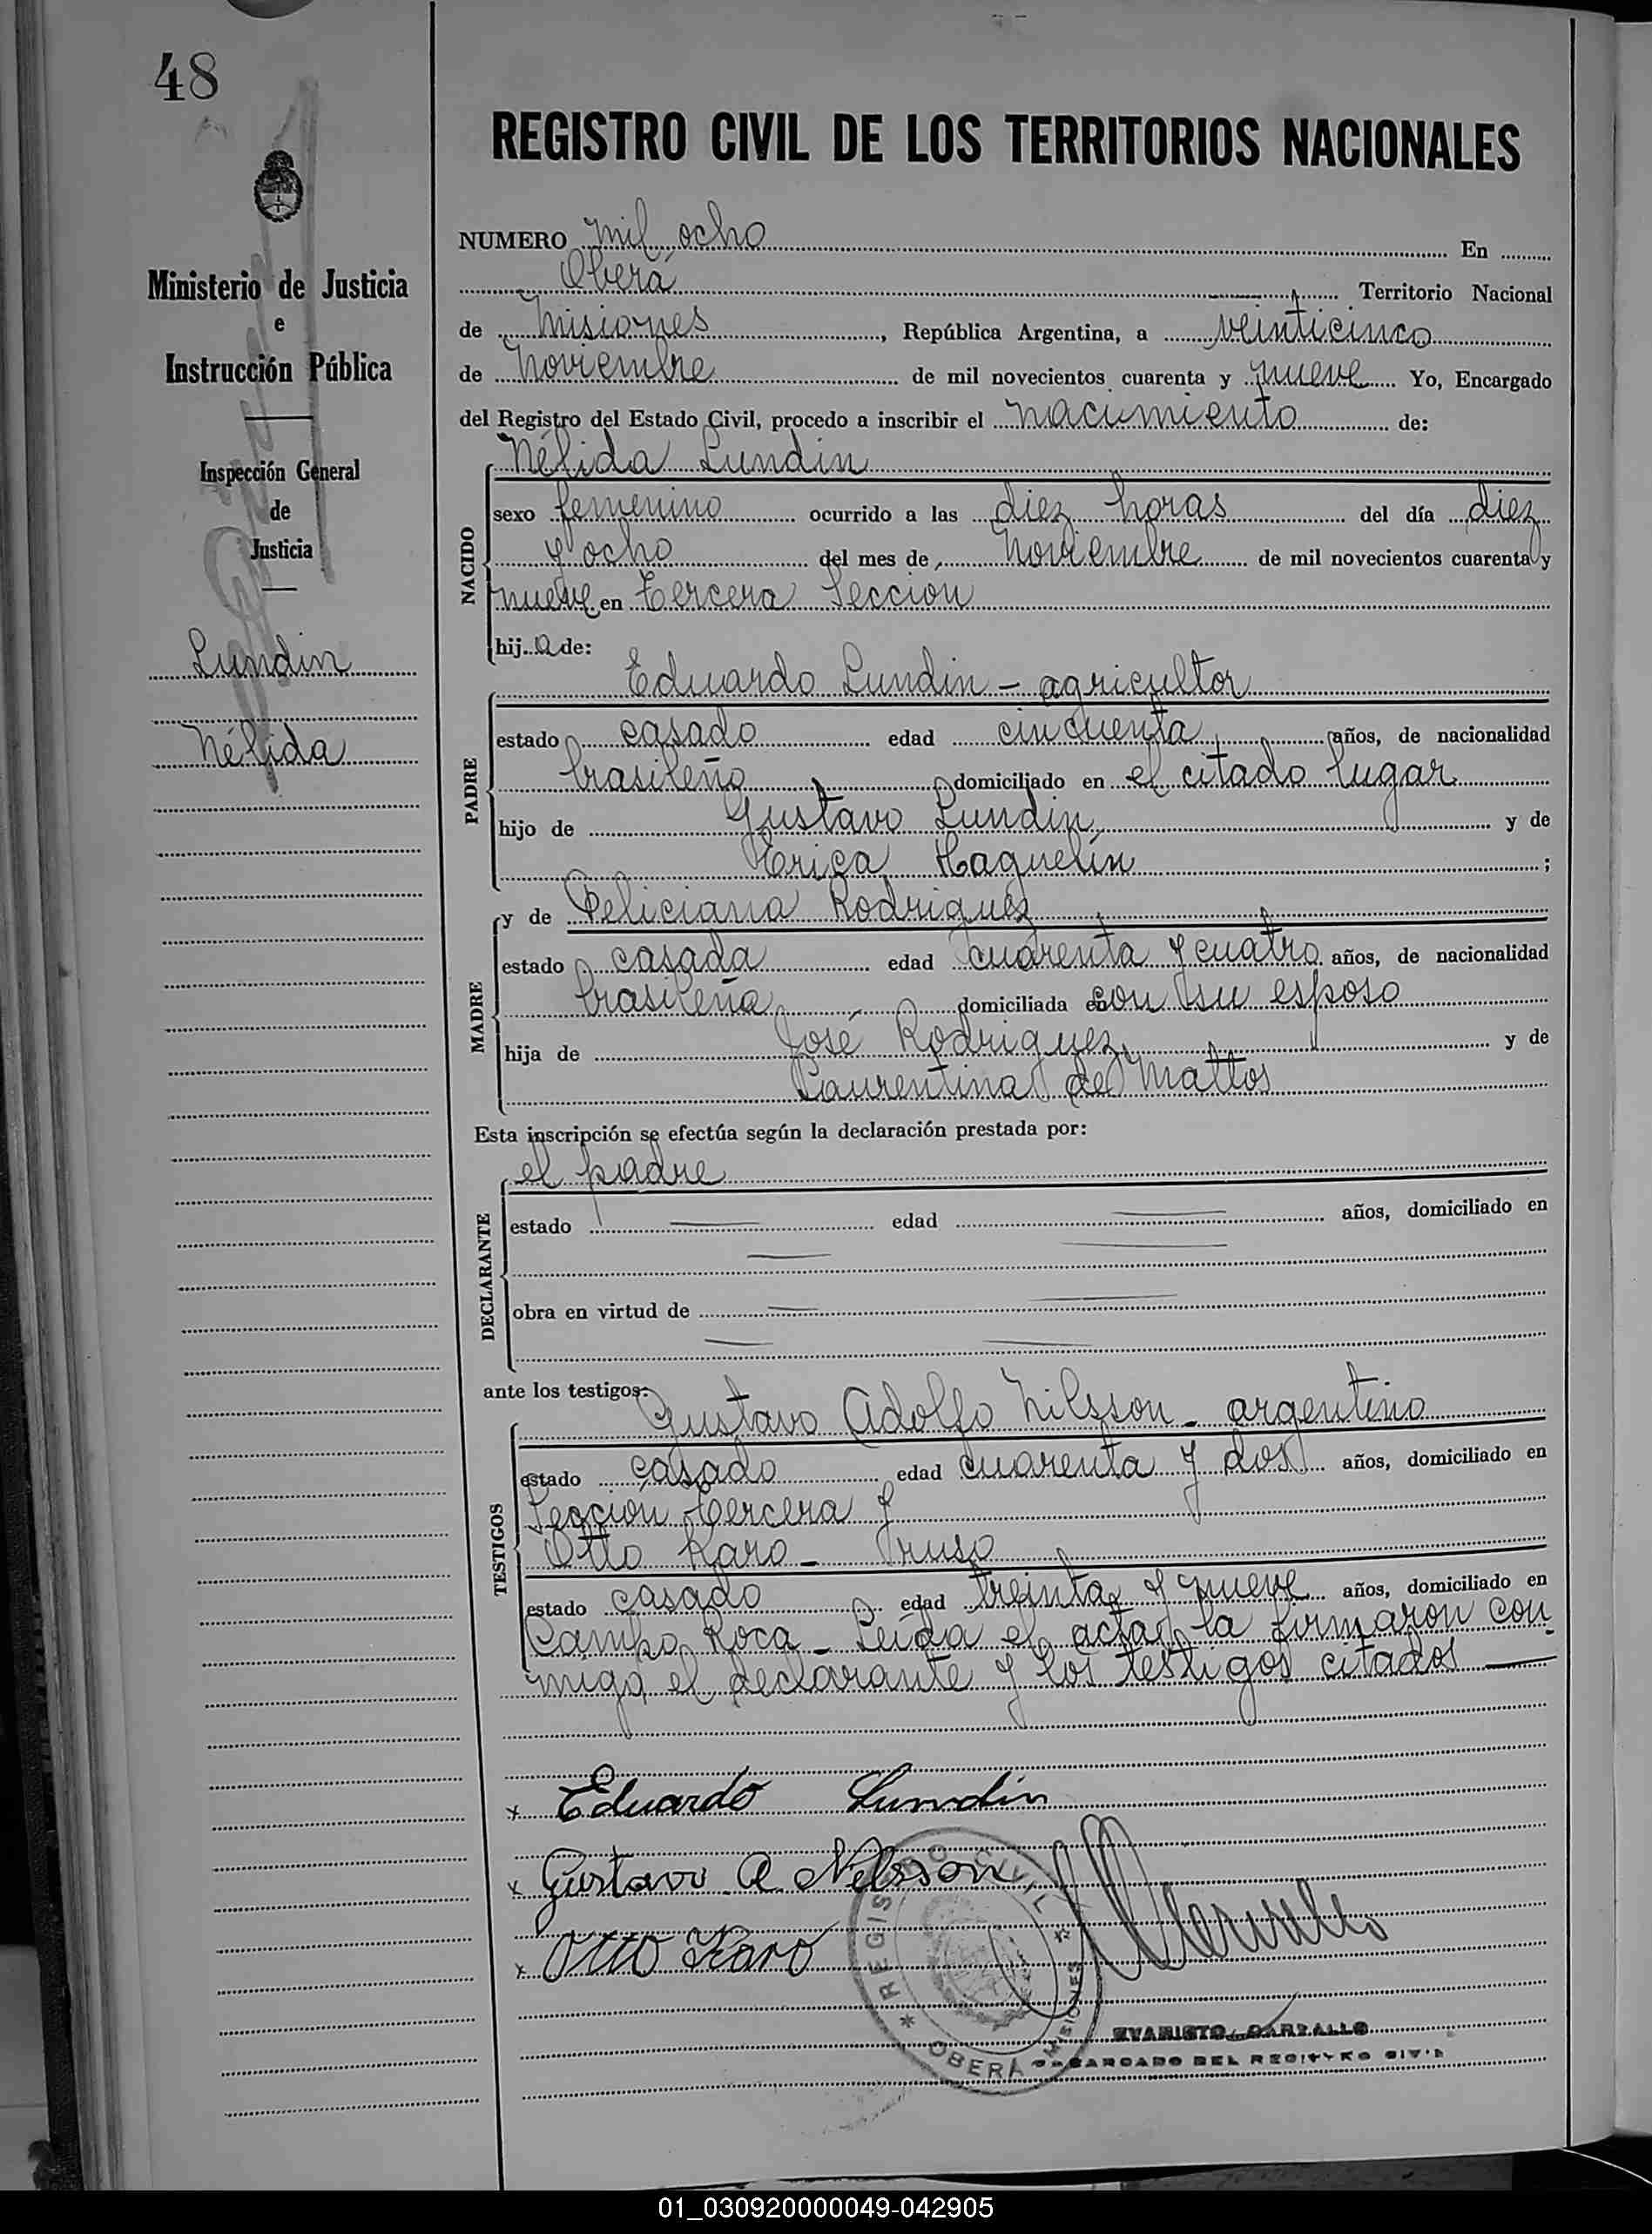 48
REGISTRO CIVIL DE LOS TERRITORIOS NACIONALES
Ministerio de Justicia
e
Instrucción Pública
Inspección General
de
Justicia
Lundin
Nélida
NUMERO mil ocho En
Oberá Territorio Nacional
de Misiones, República Argentina, a veinticinco
de Noviembre de mil novecientos cuarenta y nueve Yo, Encargado
del Registro del Estado Civil, procedo a inscribir el nacimiento de:
NACIDO
Nélida Lundin
sexo femenino ocurrido a las diez horas del día diez
y ocho del mes de Noviembre de mil novecientos cuarenta y
nueve en tercera Sección
hija de:
PADRE
Eduardo Lundin - agricultor
estado casado edad cincuenta años, de nacionalidad
brasileño domiciliado en el citado lugar
hijo de Gustavo Lundin y de
Erica Haquelin ;
MADRE
y de Feliciana Rodriguez
estado casada edad cuarenta y cuatro años, de nacionalidad
brasileña domiciliada en con su esposo
hija de José Rodriguez y de
Laurentina de Mattos
Esta inscripción se efectúa según la declaración prestada por:
DECLARANTE
el padre
estado edad años, domiciliado en
obra en virtud de
ante los testigos:
TESTIGOS
Gustavo Adolfo Nilsson - argentino
estado casado edad cuarenta y dos años, domiciliado en
Sección tercera y
Otto Karo - ruso
estado casado edad treinta y nueve años, domiciliado en
Campo Roca - Leída el acta, la firmaron con
migo el declarante y los testigos citados
x Eduardo Lundin
x Gustavo A Nilsson
x Otto Karo
REGISTRO CIVIL
OBERÁ MISIONES
EVARISTO CARBALLO
ENCARGADO DEL REGISTRO CIVIL
01_030920000049-042905